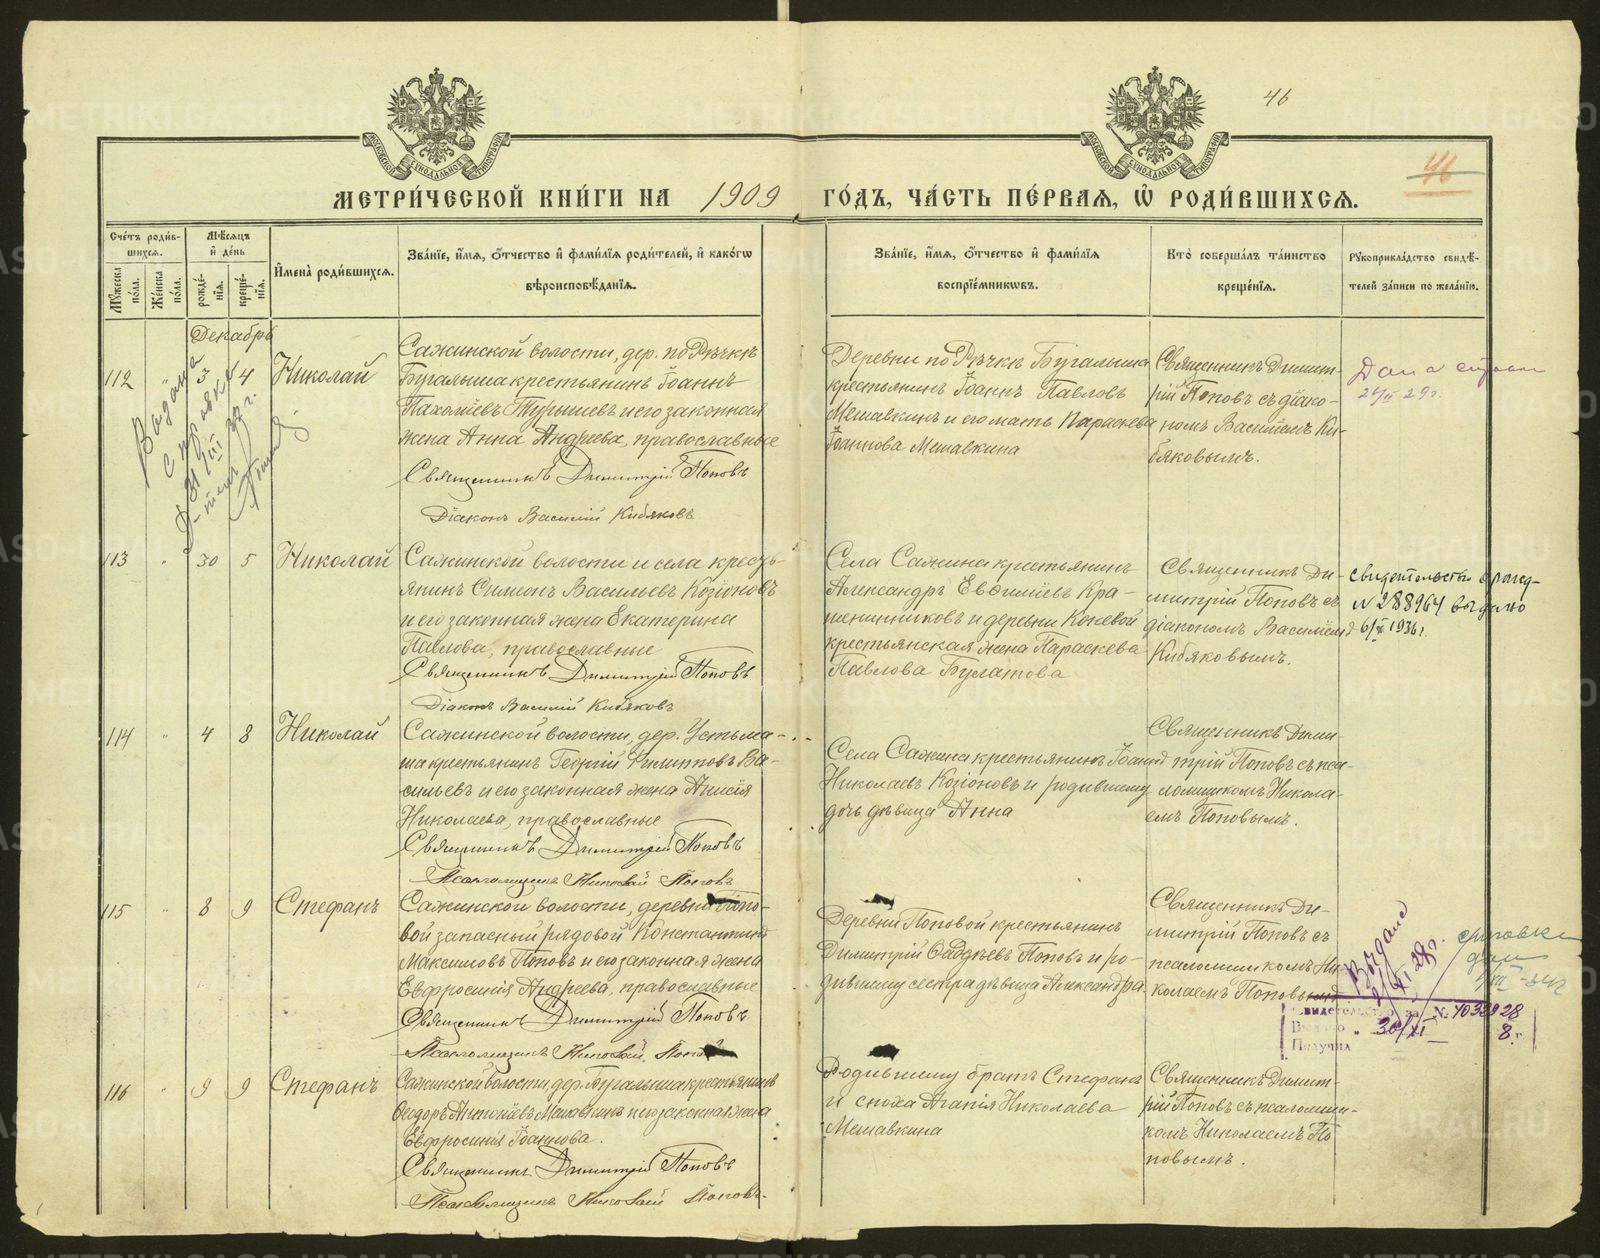 46
46
МЕТРИ́ЧЕСКОЙ КНИ́ГИ НА 1909 ГО́ДЪ, ЧА́СТЬ ПЕ́РВАѦ, Ѽ РОДИ́ВШИХСѦ.
Сче́тъ роди́в-
шихсѧ.
Мꙋ́жеска по́ла.
Же́нска по́ла.
Мѣ́сѧцъ
и҆ де́нь
рожде́-
нїѧ.
креще́-
нїѧ.
И҆мена̀ роди́вшихсѧ.
Зва́нїе, и҆́мѧ, ѻ҆́тчество и҆ фами́лїѧ роди́телей, и҆ како́гѡ
вѣроисповѣ́данїѧ.
Зва́нїе, и҆́мѧ, ѻ҆́тчество и҆ фами́лїѧ
воспрїе́мникѡвъ.
Кто̀ соверша́лъ та́инство
креще́нїѧ.
Рꙋкоприкла́дство свидѣ́-
телей за́писи по жела́нїю.
Декабрь
112 " 3 4 Николай
Сажинской волости, дер. по Рѣчкѣ
Бугалыша крестьянинъ Іоаннъ
Пахоміевъ Турышевъ и его законная
жена Анна Андреева, православные
Священникъ Димитрій Поповъ
Діаконъ Василій Кибяковъ
Деревни по Рѣчкѣ Бугалыша
крестьянинъ Іоаннъ Павловъ
Мешавкинъ и его мать Параскева
Іоаннова Мешавкина
Священникъ Димит-
рій Поповъ съ діако-
номъ Василіемъ Ки-
бяковымъ.
Дана справка
Выдана
справка
31/III 37 г.
113 " 30 5 Николай
Сажинской волости и села кресть-
янинъ Симеонъ Васильевъ Козіоновъ
и его законная жена Екатерина
Павлова, православные
Священникъ Димитрій Поповъ
Діаконъ Василій Кибяковъ
Села Сажина крестьянинъ
Александръ Евѳиміевъ Кра-
шенинниковъ и деревни Коневой
крестьянская жена Параскева
Павлова Булатова
Священникъ Ди-
митрій Поповъ съ
діакономъ Василіемъ
Кибяковымъ.
свидетельство о рожд-
N 288964 выдано
6/XI 1936 г.
114 " 4 8 Николай
Сажинской волости, дер. Устьма-
ша крестьянинъ Георгій Филипповъ Ва-
сильевъ и его законная жена Анисія
Николаева, православные
Священникъ Димитрій Поповъ
Псаломщикъ Николай Поповъ
Села Сажина крестьянинъ Іоаннъ
Николаевъ Козіоновъ и родившему
дочь дѣвица Анна
Священникъ Дими-
трій Поповъ съ пса-
ломщикомъ Никола-
емъ Поповымъ.
115 " 8 9 Стефанъ
Сажинской волости, деревни Попо-
вой запасный рядовой Константинъ
Максимовъ Поповъ и его законная жена
Евфросинія Андреева, православные
Священникъ Димитрій Поповъ
Псаломщикъ Николай Поповъ
Деревни Поповой крестьянинъ
Димитрій Ѳаддѣевъ Поповъ и ро-
дившему сестра дѣвица Александра
Священникъ Ди-
митрій Поповъ съ
псаломщикомъ Ни-
колаемъ Поповымъ
Выдано
справка
дана
Свидетельство за № 1033928
Выдано " 30/XI 8 г.
Получил
116 " 9 9 Стефанъ
Сажинской волости, дер. Бугалыша крестьянинъ
Ѳеодоръ Антоніевъ Мешавкинъ и его законная жена
Евфросинія Іоаннова.
Священникъ Димитрій Поповъ
Псаломщикъ Николай Поповъ
Родившему братъ Стефанъ
и сноха Агапія Николаева
Мешавкина
Священникъ Димит-
рій Поповъ съ псаломщи-
комъ Николаемъ По-
повымъ.
METRIKI.GASO-URAL.RU